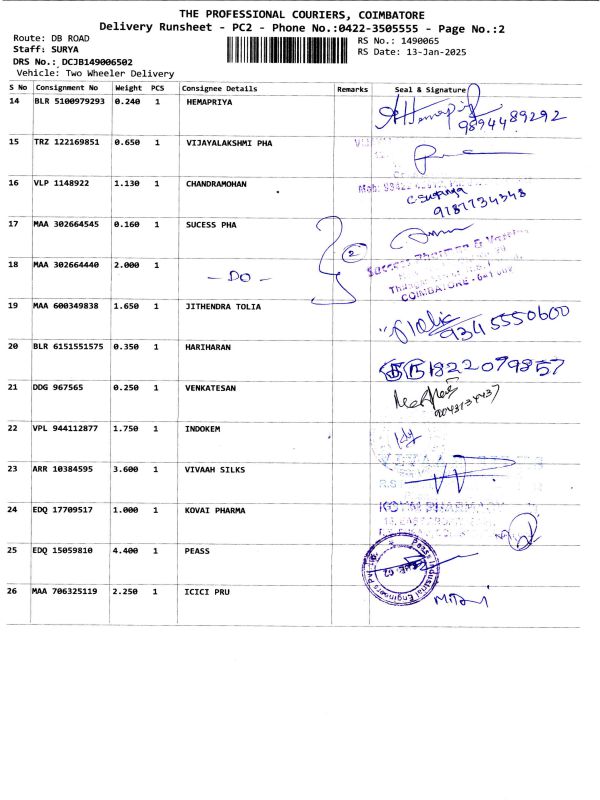 THE PROFESSIONAL COURIERS, COIMBATORE
Delivery Runsheet - PC2 - Phone No.:0422-3505555 - Page No.:2
Route: DB ROAD
RS No.: 1490065
Staff: SURYA
RS Date: 13-Jan-2025
DRS No.: DCJB149006502
Vehicle: Two Wheeler Delivery
S No Consignment No Weight PCS Consignee Details Remarks Seal & Signature
14 BLR 5100979293 0.240 1 HEMAPRIYA
9894489292
15 TRZ 122169851 0.650 1 VIJAYALAKSHMI PHA
16 VLP 1148922 1.130 1 CHANDRAMOHAN
9787734348
17 MAA 302664545 0.160 1 SUCESS PHA
2
18 MAA 302664440 2.000 1 - DO -
COIMBATORE - 641 002
19 MAA 600349838 1.650 1 JITHENDRA TOLIA
9345550600
20 BLR 6151551575 0.350 1 HARIHARAN
1822079857
21 DDG 967565 0.250 1 VENKATESAN
9043134437
22 VPL 944112877 1.750 1 INDOKEM
23 ARR 10384595 3.600 1 VIVAAH SILKS
R.S
24 EDQ 17709517 1.000 1 KOVAI PHARMA
KOVAI PHARMA
25 EDQ 15059810 4.400 1 PEASS
Peass Industrial Engineers Pvt. Ltd.
26 MAA 706325119 2.250 1 ICICI PRU